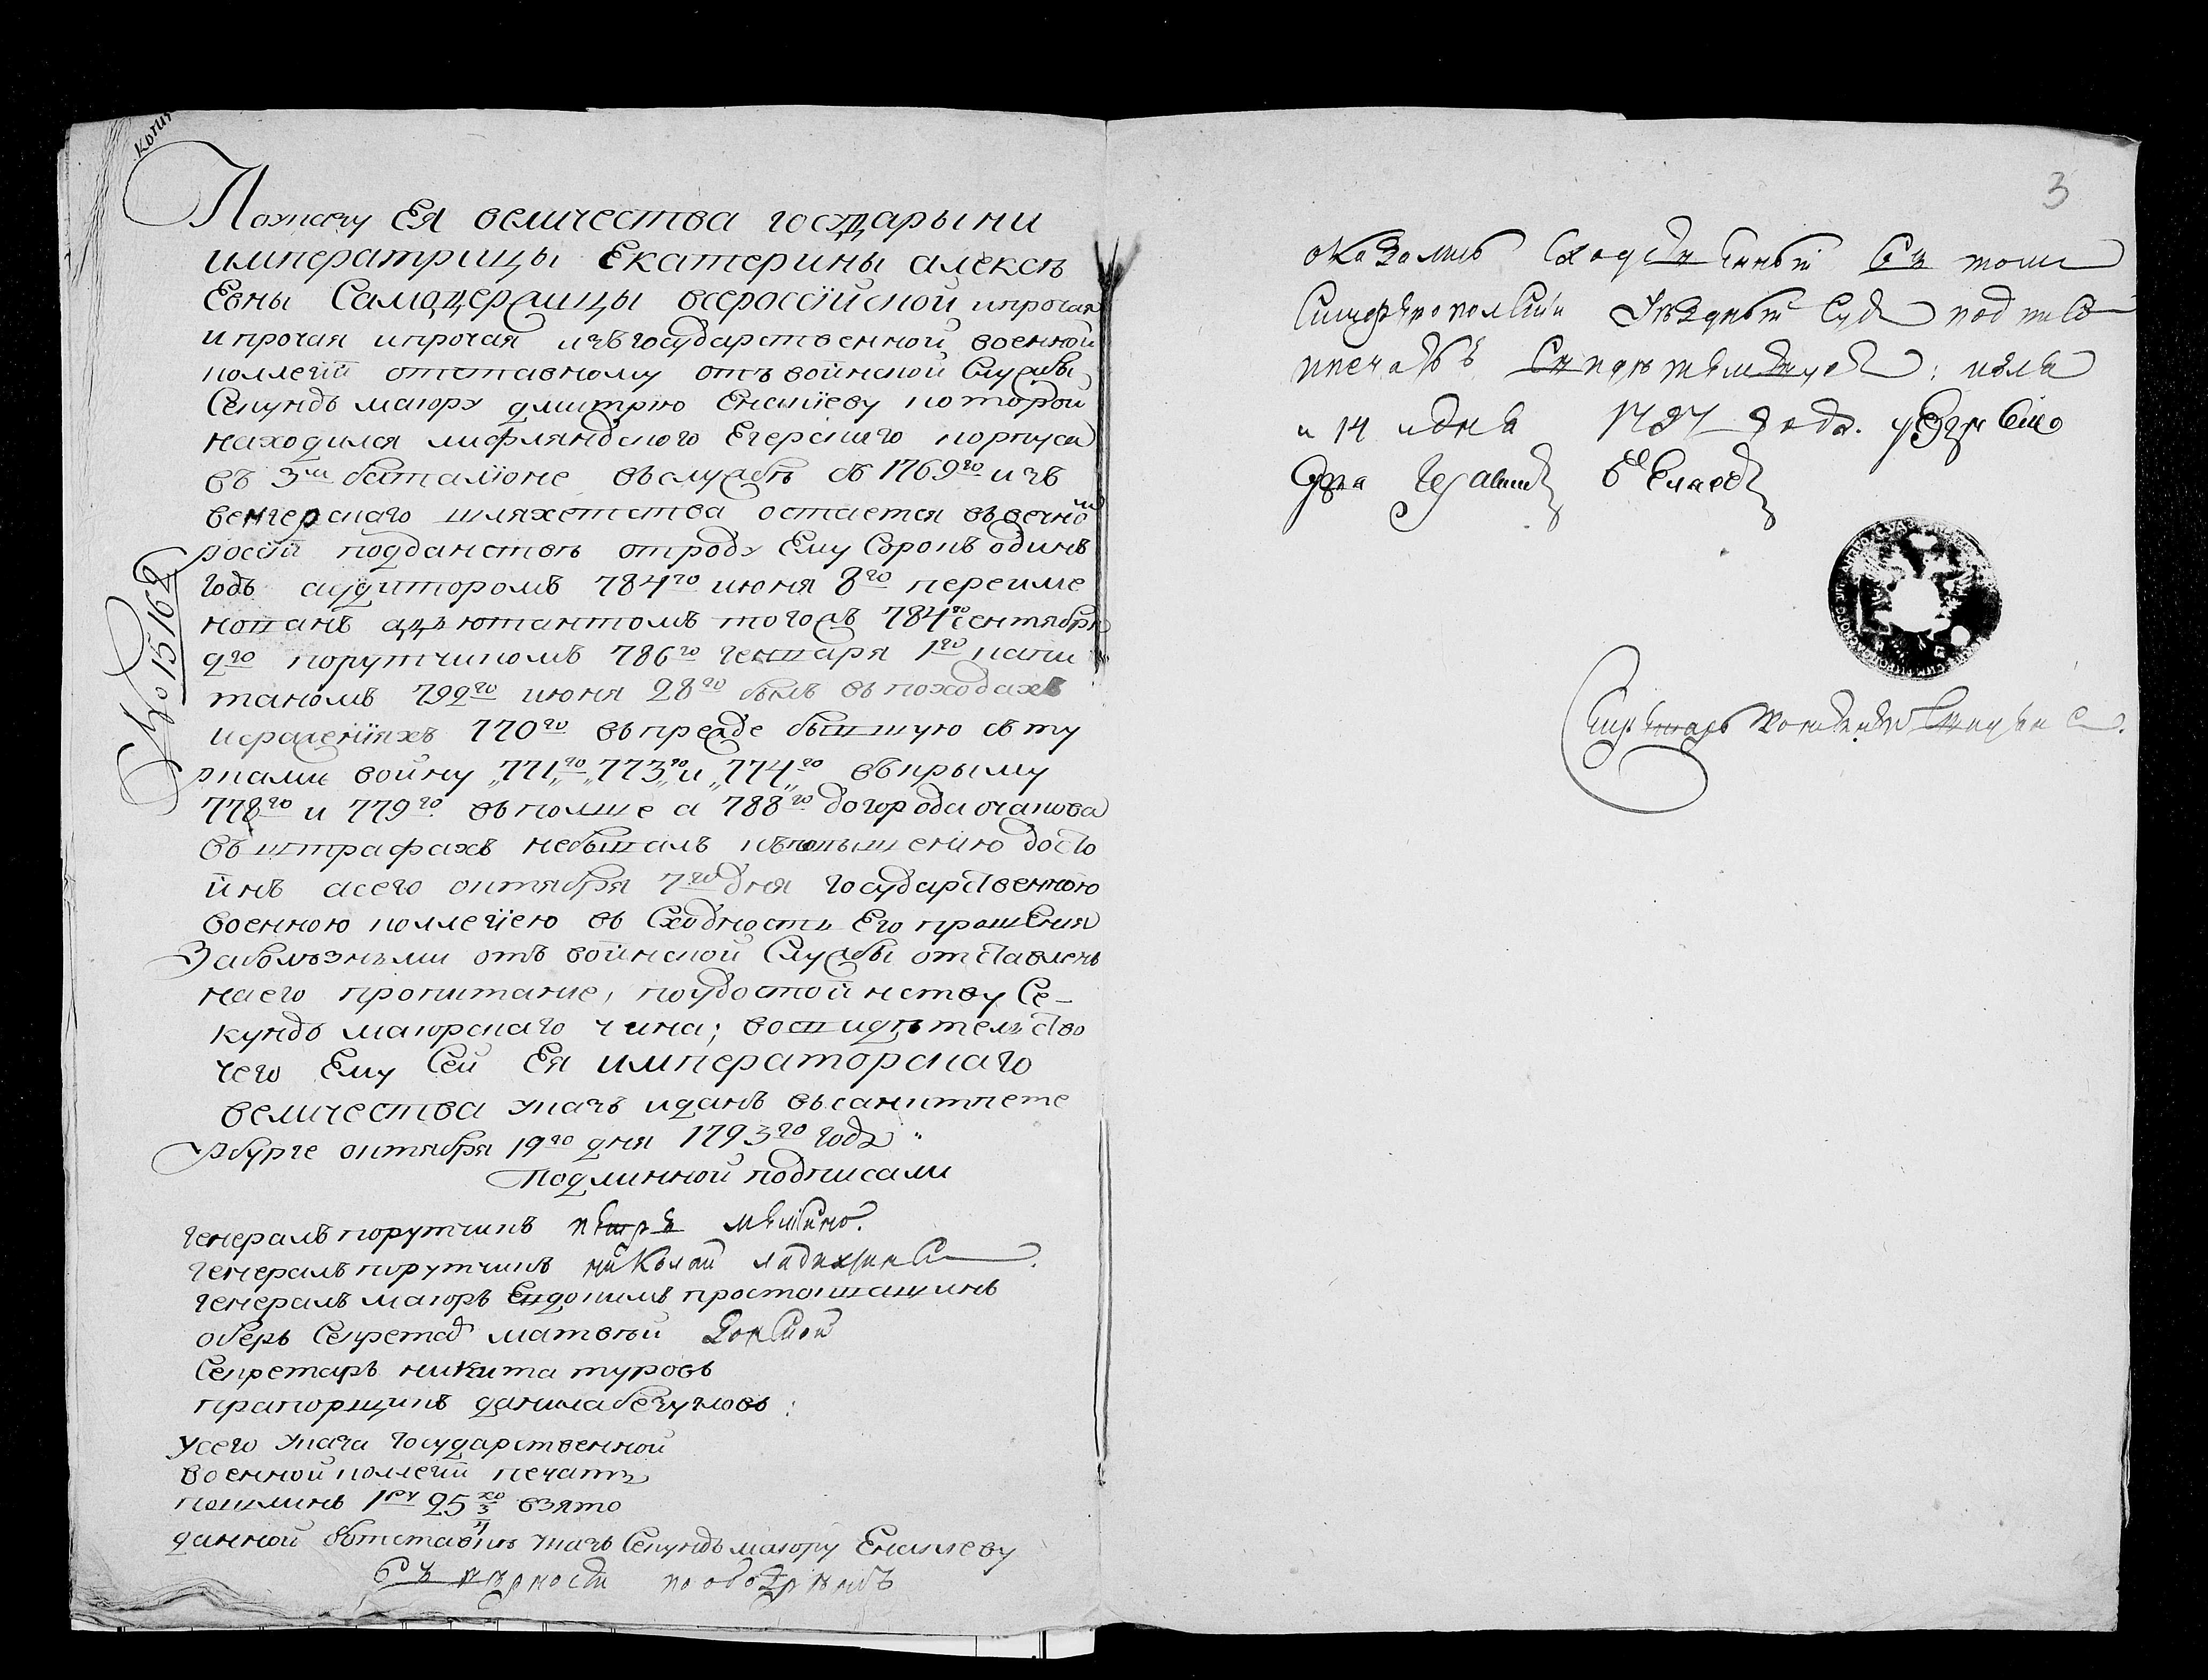 копия
По указу Ея величества государыни
императрицы Екатерины алексѣ
Евны Самодержицы всероссiйской ипрочая
ипрочая ипрочая изъ государственной военной
коллегiи отставному отъ воинской Службы
Секундъ маиору дмитрию которой
находился лифляндского Егерского корпуса
въ 3м баталiоне въ службѣ съ 1769го изъ
венгерскаго шляхетства остается въ вечном
россiи подданствѣ отроду Ему Сорокъ одинъ
годъ аудиторомъ 784го июня 8го переиме
нованъ адъютантомъ тогожъ 784го сентября
9го порутчикомъ 786го генваря 1го капи
таномъ 792го июня 28го былъ въ походахъ
исражениях 770го въ прежде бывшую съ ту
рками войну „771го„ „773го и „774„го въ крыму
778го и 779го въ полше а 788го до города очакова
въ штрафахъ небывалъ повышению досто
инъ асего октября 7го дня государственною
военною коллегiею въ Сходность Его прошения
Заболѣзньми отъ воинской Службы отставленъ
наего пропитание, поудостоинству Се-
кундъ маиорскаго чина; во свидѣтельство
чего Ему Сей Ея императорскаго
величества указъ иданъ въ санктпете
рбурге октября 19го дня 1793го года
Подлинной подписали
№ 15169
генералъ порутчикъ петръ мелисино.
генералъ порутчикъ николай ладиженской.
генералъ маиоръ Евдокимъ
оберъ Секретарь матвей
Секретарь никита туровъ
прапорщикъ данила безугловъ:
усего указа государственной
военной коллегiи печать
пошлинъ 1ру 25 3/4 ко взято
данной въ отставкѣ указъ Секундъ маиору
въ вѣрности
3
оказалис въ томъ
Симферополский Уѣздный Судъ подписом
ипечатью июля
и 14 дня 1797 года. уѣздного
Суда
Секретарь